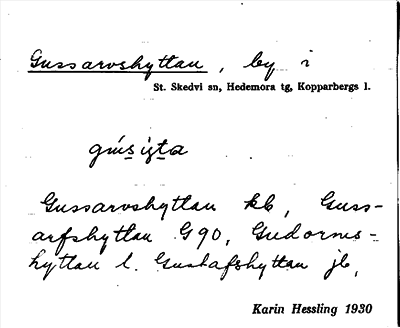 Gussarvshyttan, by i
St. Skedvi sn, Hedemora tg, Kopparbergs l.
gúsizta
Gussarvshyttan kb, Guss-
arfshyttan G90, Gudorms-
hyttan l. Gustafshyttan jb,
Karin Hessling 1930